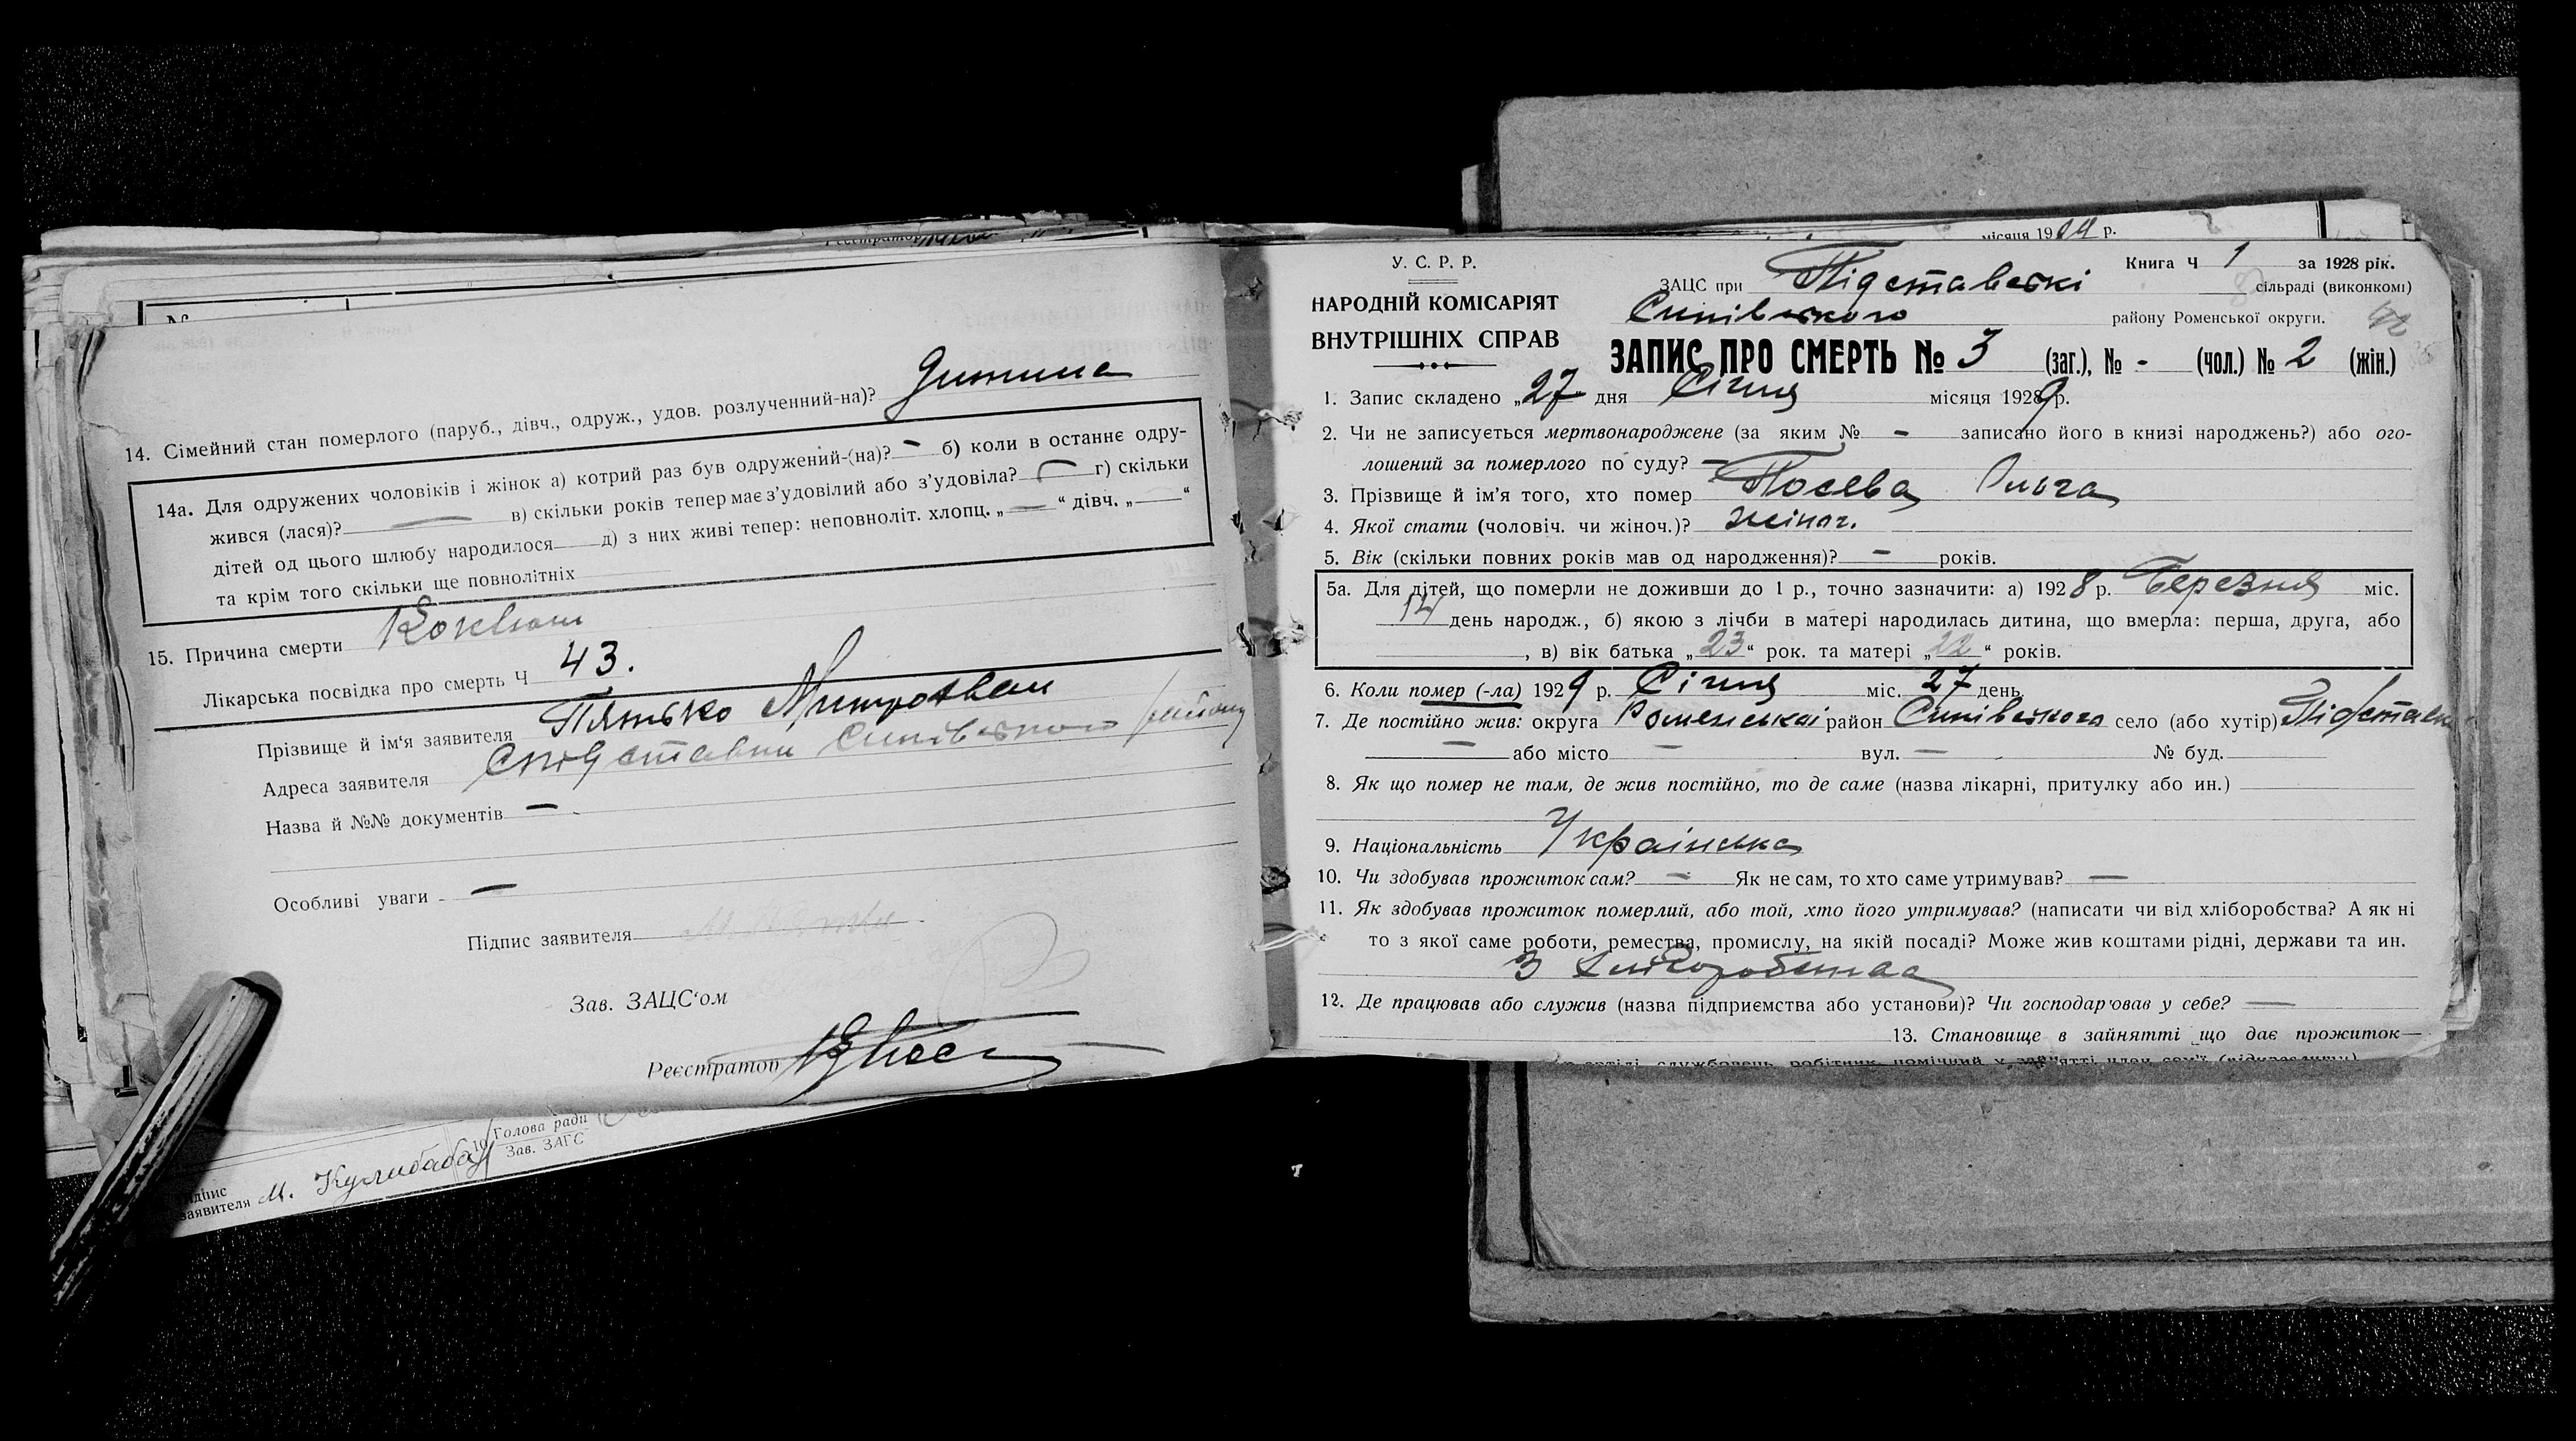 Реєстратор
№
14. Сімейний стан померлого (паруб., дівч., одруж., удов. розлученний-на)? Дитина
14а. Для одружених чоловіків і жінок а) котрий раз був одружений-(на)? — б) коли в останнє одру-
жився (лася)? — в) скільки років тепер має з'удовілий або з'удовіла? — г) скільки
дітей од цього шлюбу народилося д) з них живі тепер: неповноліт. хлопц. „ — “ дівч. „ “
та крім того скільки ще повнолітніх
15. Причина смерти Коклюш
Лікарська посвідка про смерть Ч 43.
Прізвище й ім'я заявителя Пятько Митрофан
Адреса заявителя с Підставки Синівського району
Назва й №№ документів —
Особливі уваги —
Підпис заявителя
Зав. ЗАЦС'ом
Реєстратор
Голова ради
Зав. ЗАГС
заявителя М. Кулибаба
місяця 19 р.
У. С. Р. Р.
НАРОДНІЙ КОМІСАРІЯТ
ВНУТРІШНІХ СПРАВ
Книга Ч 1 за 1928 рік.
ЗАЦС при Підставскі сільраді (виконкомі)
Синівського району Роменської округи.
42
ЗАПИС ПРО СМЕРТЬ № 3 (заг.), № - (чол.) № 2 (жін.)
1. Запис складено „27 дня Січня місяця 1929 р.
2. Чи не записується мертвонароджене (за яким № — записано його в книзі народжень?) або ого-
лошений за померлого по суду? —
3. Прізвище й ім'я того, хто помер Посева Ольга
4. Якої стати (чоловіч. чи жіноч.)? жіноч.
5. Вік (скільки повних років мав од народження)? — років.
5а. Для дітей, що померли не доживши до 1 р., точно зазначити: а) 1928 р. Березня міс.
14 день народж., б) якою з лічби в матері народилась дитина, що вмерла: перша, друга, або
, в) вік батька „23“ рок. та матері „22“ років.
6. Коли помер (-ла) 1929 р. Січня міс. 27 день
7. Де постійно жив: округа Роменськаі район Синівського село (або хутір) Підставки
— або місто — вул. — № буд.
8. Як що помер не там, де жив постійно, то де саме (назва лікарні, притулку або ин.)
9. Національність Українська
10. Чи здобував прожиток сам? — Як не сам, то хто саме утримував? —
11. Як здобував прожиток померлий, або той, хто його утримував? (написати чи від хліборобства? А як ні
то з якої саме роботи, ремества, промислу, на якій посаді? Може жив коштами рідні, держави та ин.
З хліборобства
12. Де працював або служив (назва підприємства або установи)? Чи господар'ював у себе? —
13. Становище в зайнятті що дає прожиток—